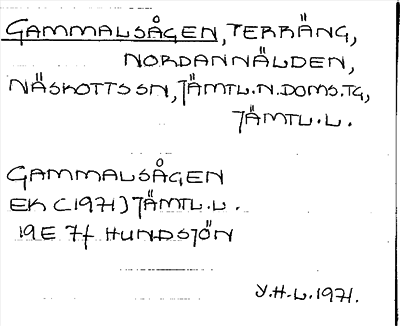 GAMMALSÅGEN, TERRÄNG,
NORDANNÄLDEN,
NÄSKOTTS SN, JÄMTL.N.DOMS.TG,
JÄMTL.L.
GAMMALSÅGEN
EK (1971) JÄMTL.L.
19E 7f HUNDSJÖN
Y.H-L.1971.